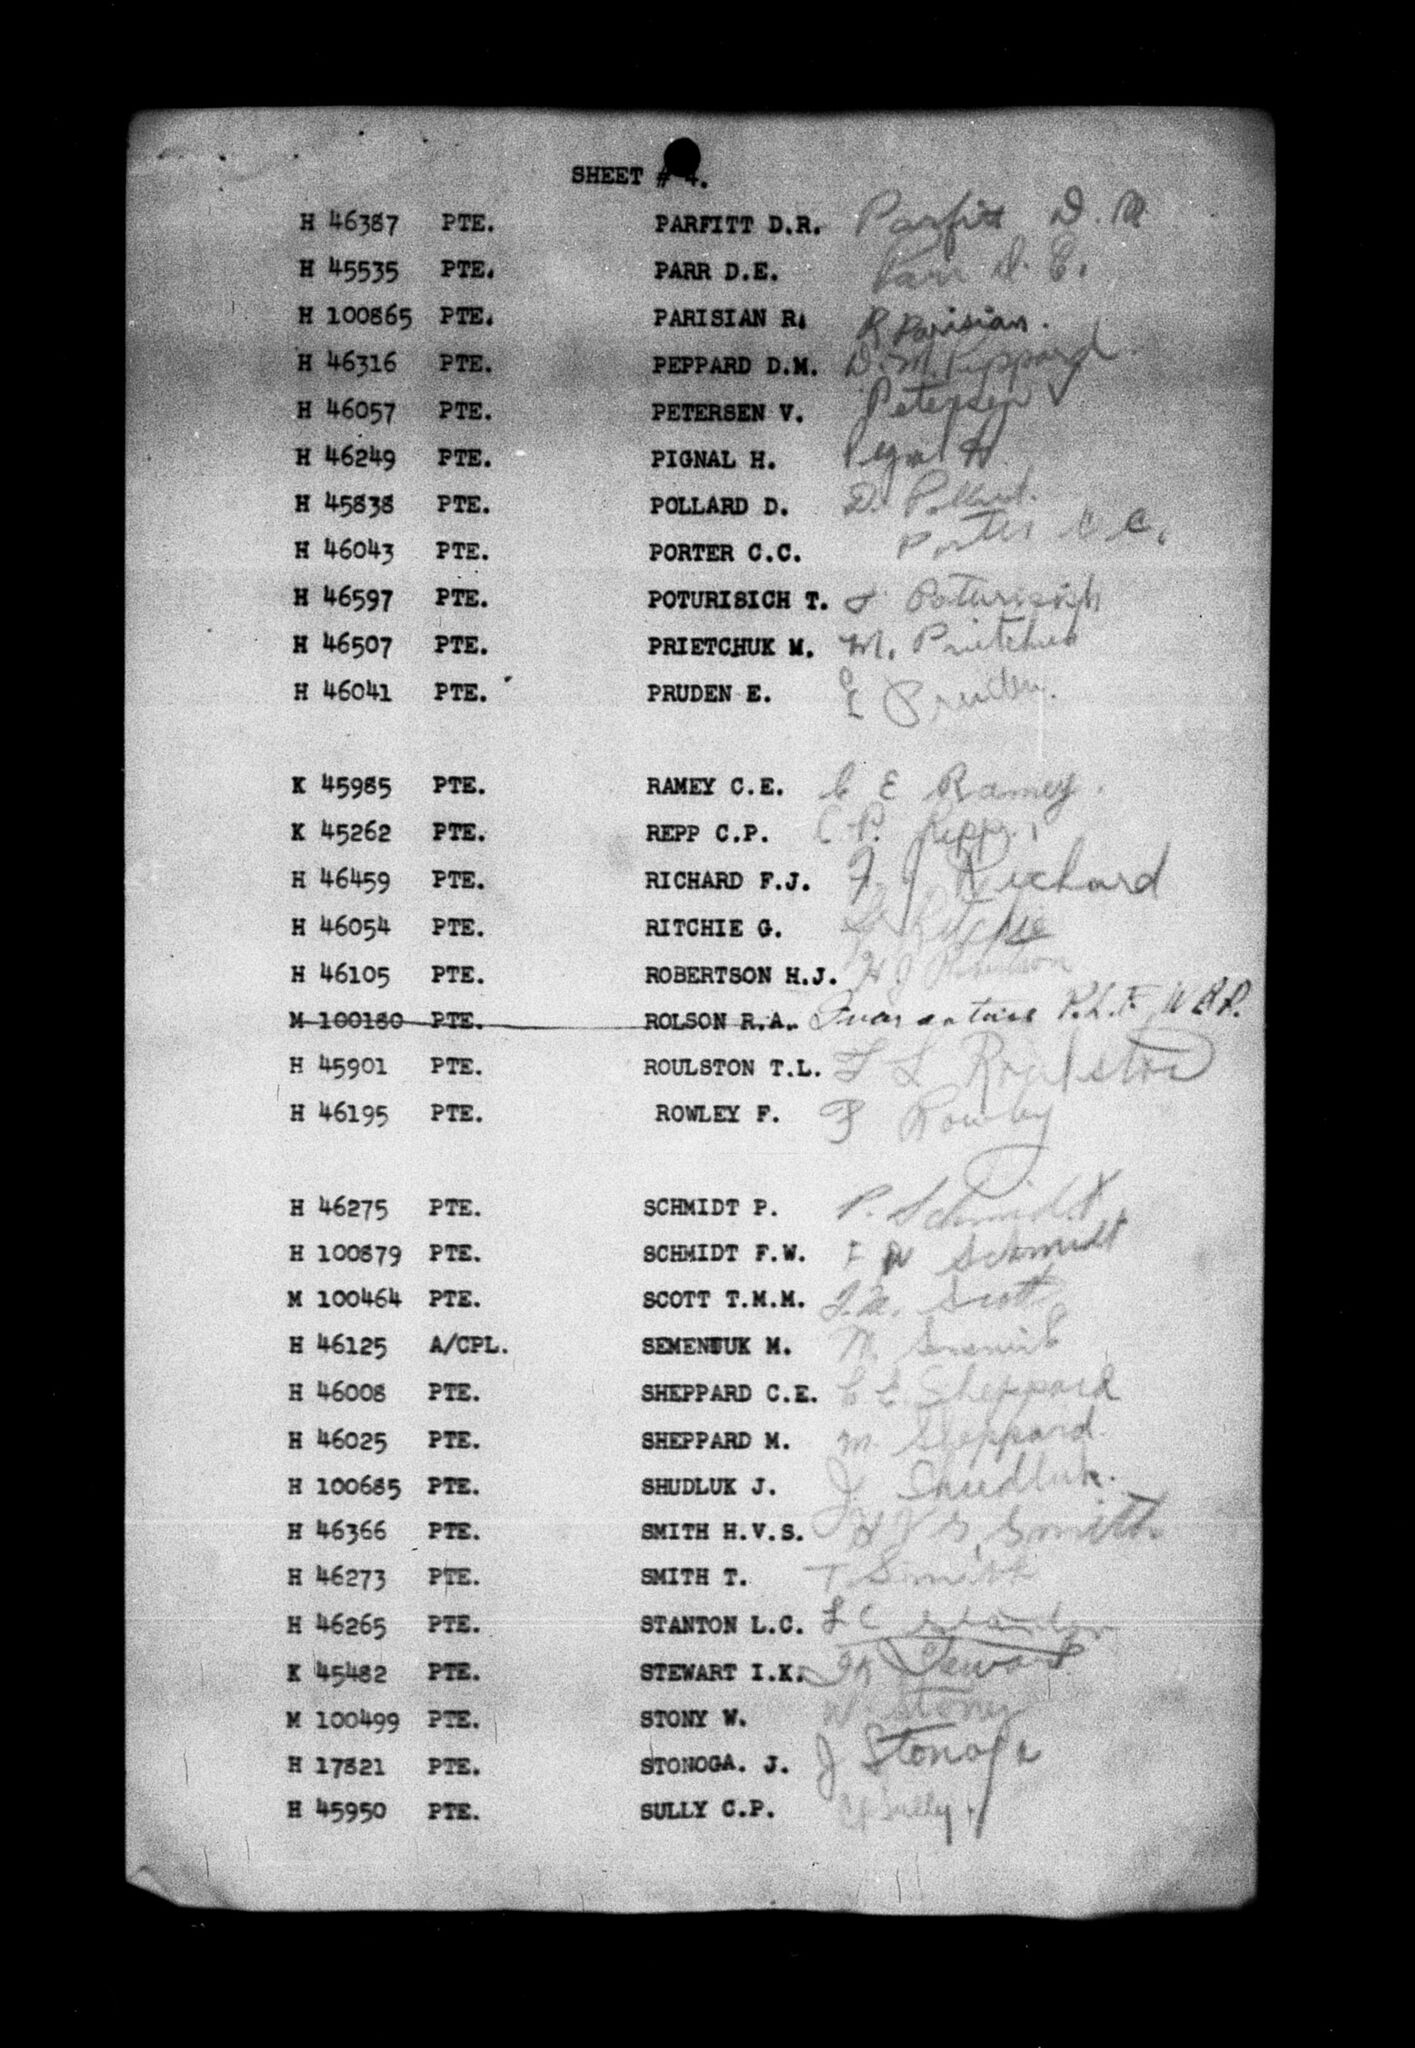 SHEET # 4.
H 46387 PTE. PARFITT D.R. Parfitt D. R
H 45535 PTE. PARR D.E. Parr D. E.
H 100865 PTE. PARISIAN R. R Parisian.
H 46316 PTE. PEPPARD D.M. D. M. Peppard
H 46057 PTE. PETERSEN V. Petersen V
H 46249 PTE. PIGNAL H. H
H 45838 PTE. POLLARD D. D. Pollard.
H 46043 PTE. PORTER C.C. Porter C. C.
H 46597 PTE. POTURISICH T. Poturisich
H 46507 PTE. PRIETCHUK M. M.
H 46041 PTE. PRUDEN E. E Pruden.
K 45985 PTE. RAMEY C.E. C E Ramey.
K 45262 PTE. REPP C.P. C P. Repp.
H 46459 PTE. RICHARD F.J. F J Richard
H 46054 PTE. RITCHIE G. G Ritchie
H 46105 PTE. ROBERTSON H.J. H J Robertson
M 100180 PTE. ROLSON R.A.
H 45901 PTE. ROULSTON T.L. T L Roulston
H 46195 PTE. ROWLEY F. F Rowley
H 46275 PTE. SCHMIDT P. P. Schmidt
H 100879 PTE. SCHMIDT F.W. F W Schmidt
M 100464 PTE. SCOTT T.M.M. T.M. Scott
H 46125 A/CPL. SEMENIUK M. M.
H 46008 PTE. SHEPPARD C.E. C E. Sheppard
H 46025 PTE. SHEPPARD M. M. Sheppard
H 100685 PTE. SHUDLUK J. J. Shudluk.
H 46366 PTE. SMITH H.V.S. H V S. Smith.
H 46273 PTE. SMITH T. T Smith
H 46265 PTE. STANTON L.C. L C Stanton
K 45482 PTE. STEWART I.K. I K Stewart
M 100499 PTE. STONY W. W. Stony
H 17821 PTE. STONOGA. J. J Stonoga
H 45950 PTE. SULLY C.P. C P Sully.